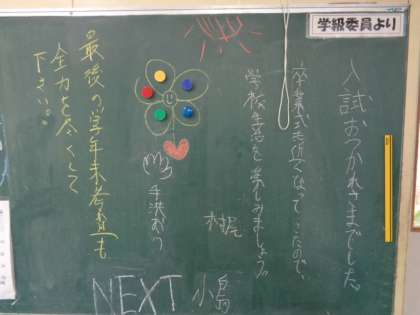 学級委員より
入試おつかれさまでした。
卒業式も近くなってきたので、
学校生活を楽しみましょう。
村尾
手洗おう
最後の学年末考査も
全力を尽くして
下さい。
NEXT 小島